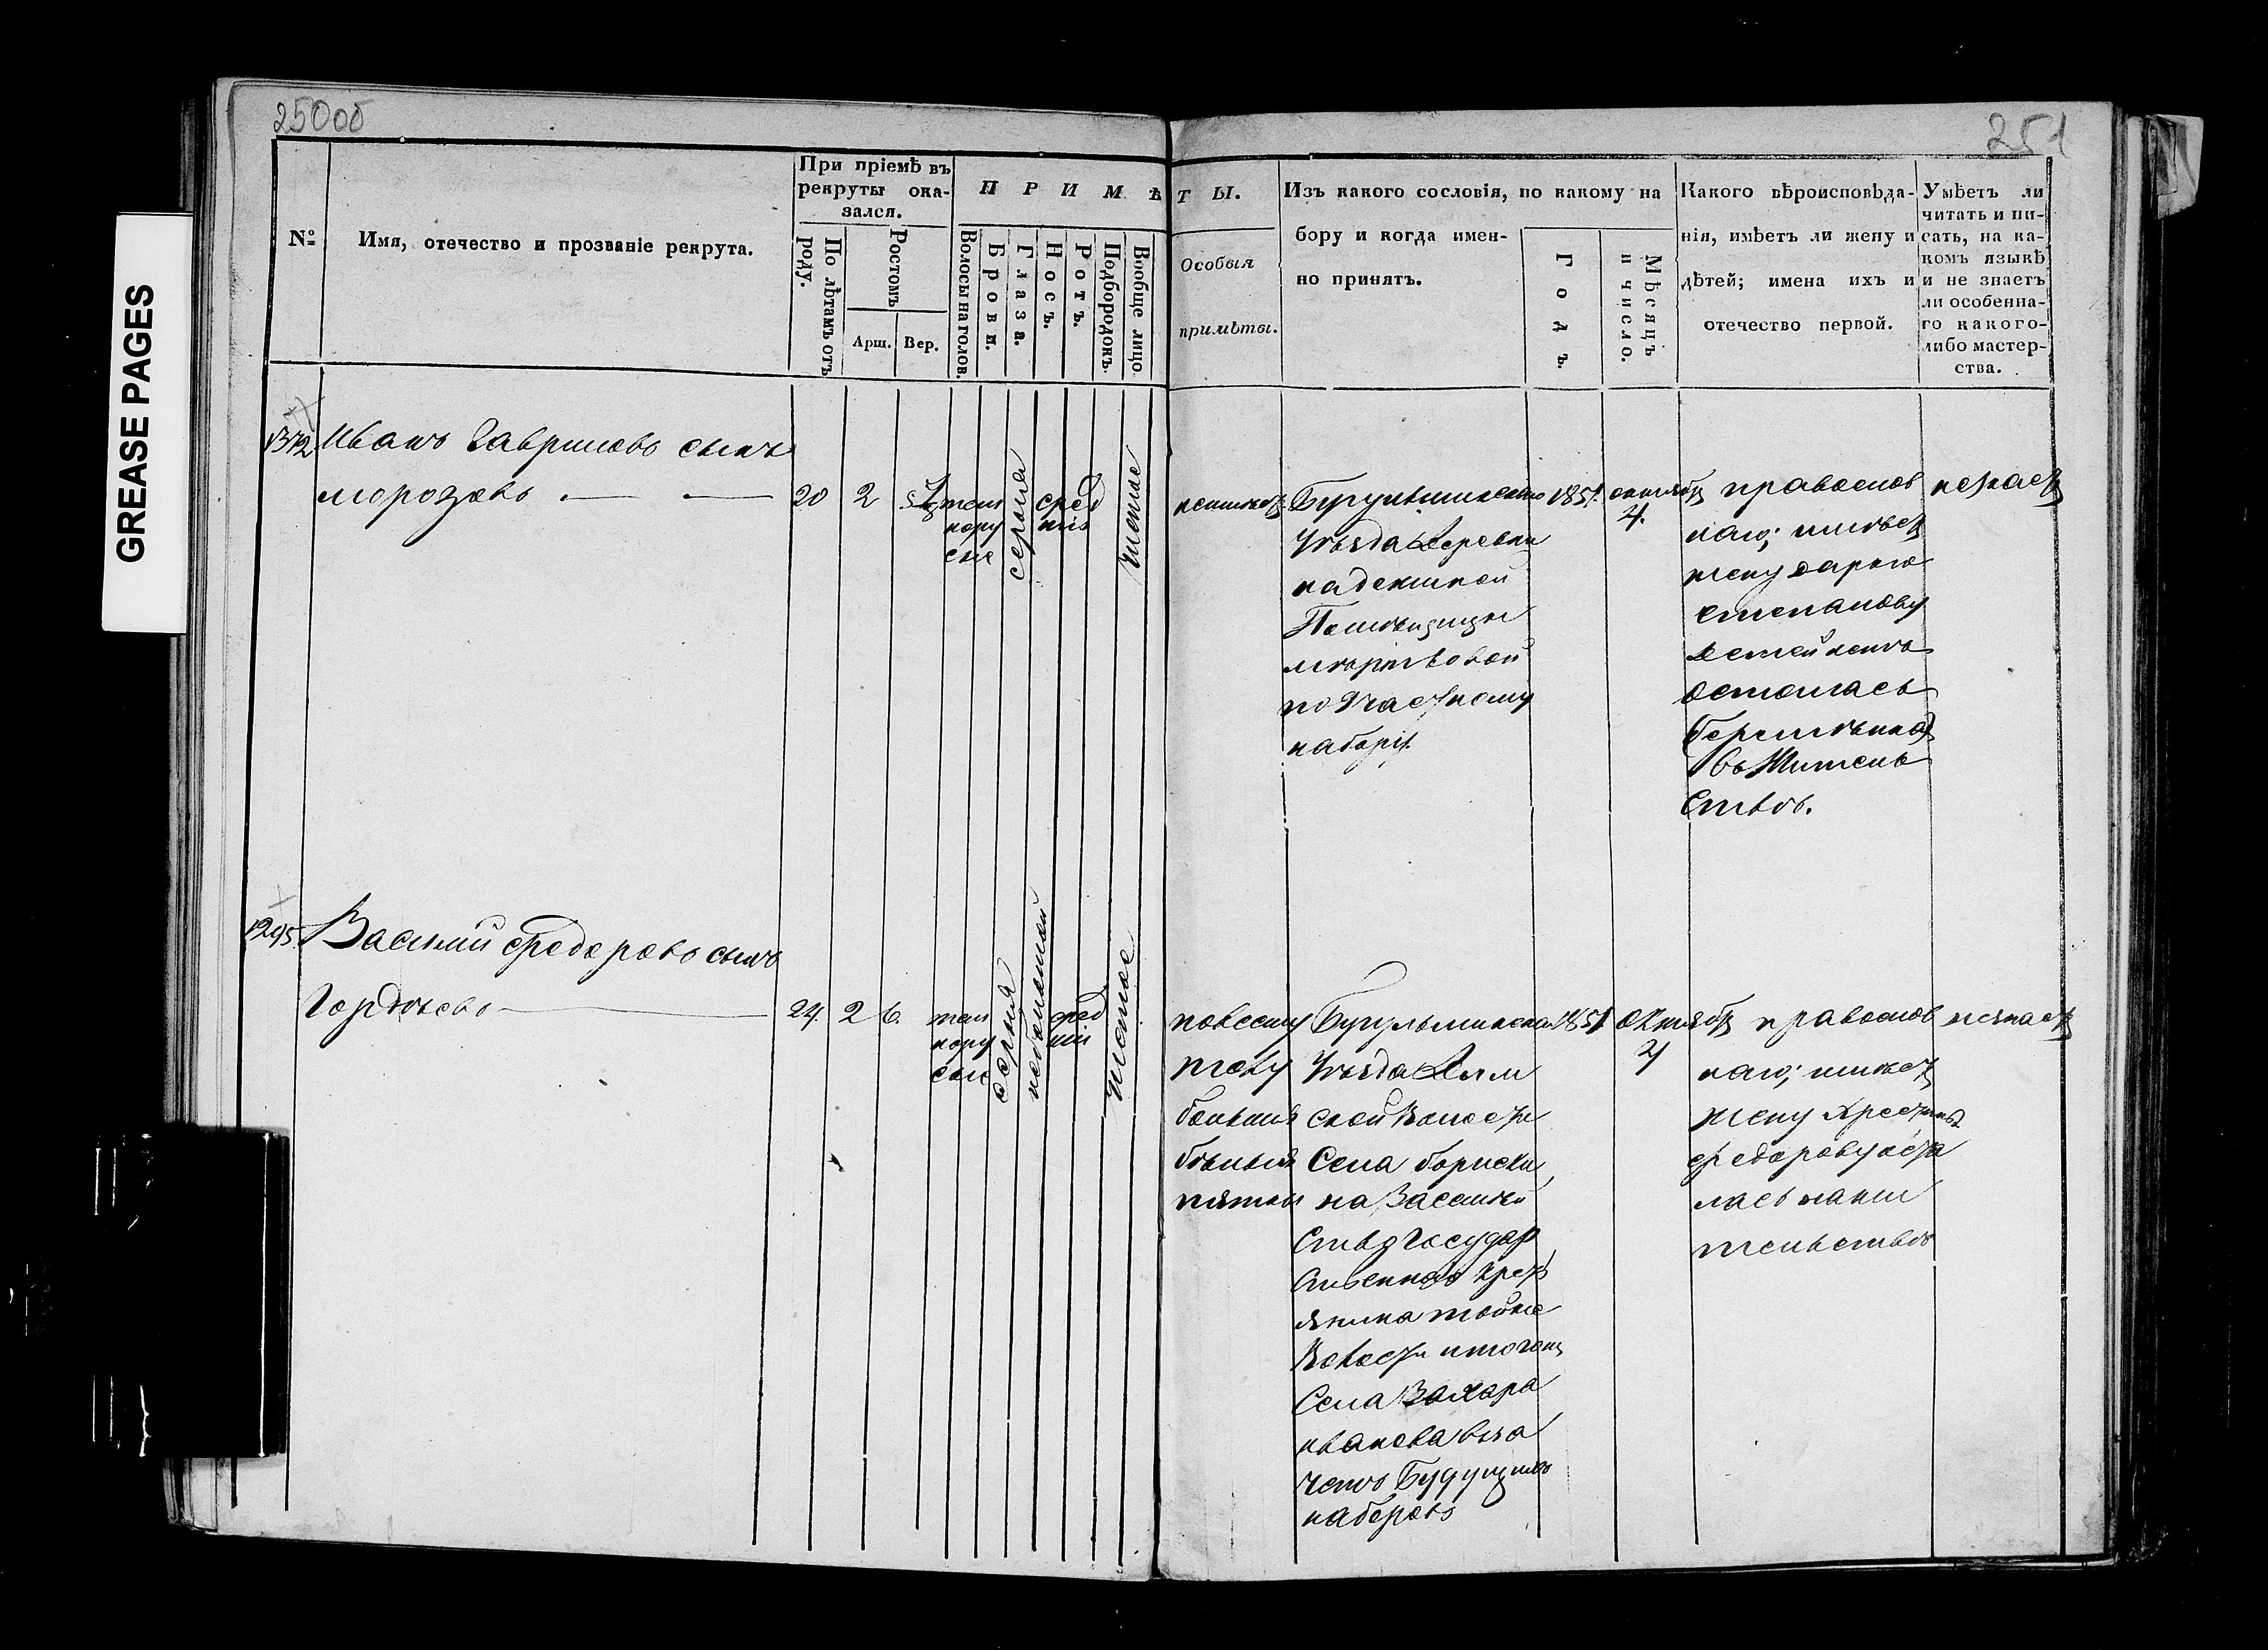 25000
251
GREASE PAGES
№
Имя, отечество и прозваніе рекрута.
При пріемѣ въ
рекруты ока-
зался.
По лѣтамъ отъ
роду.
Ростомъ
Арш.
Вер.
ПРИМѢТЫ.
Волосы на голов.
Брови.
Глаза.
Носъ.
Ротъ.
Подбородокъ.
Вообще лицо.
Особыя
примѣты.
Изъ какого сословія, по какому на
бору и когда имен-
но принятъ.
Годъ.
Мѣсяцъ
и число.
Какого вѣроисповѣда-
нія, имѣетъ ли жену и
дѣтей; имена ихъ и
отечество первой.
Умѣетъ ли
читать и пи-
сать, на ка-
комъ языкѣ
и не знаетъ
ли особенна-
го какого-
либо мастер-
ства.
1372
Иванъ Гавриловъ сынъ
Морозовъ
20
2
темно
русые
серые
сред
ніе
чистое
неимеетъ
Бугульминскаго
Уѣзда Деревни
Помѣщицы
по Частному
наборѣ
1851.
октября
4.
православ
наго; имѣетъ
жену Дарью
Степанову
детей нетъ
осталась
беремѣнна
въ Житель
ствѣ.
незнаетъ
1295
Василий Федоровъ сынъ
Гордѣевъ
24.
2
6.
темно
русые
серыя
небольшой
сред
ній
чистое
по всему
телу
большия
бѣлыя
пятны
Бугульминскаго
Уѣзда Дым
ской Волости
Села Бориски
на Ведомства Государ
ственнаго крестъ
янина тойже
Волости итогожъ
Села Захара
Иванова вза
четъ Будущихъ
наборовъ
1851.
Октября
4
православ
наго; имѣетъ
жену
Федорову оста
лась нажи
тельствѣ
незнаетъ